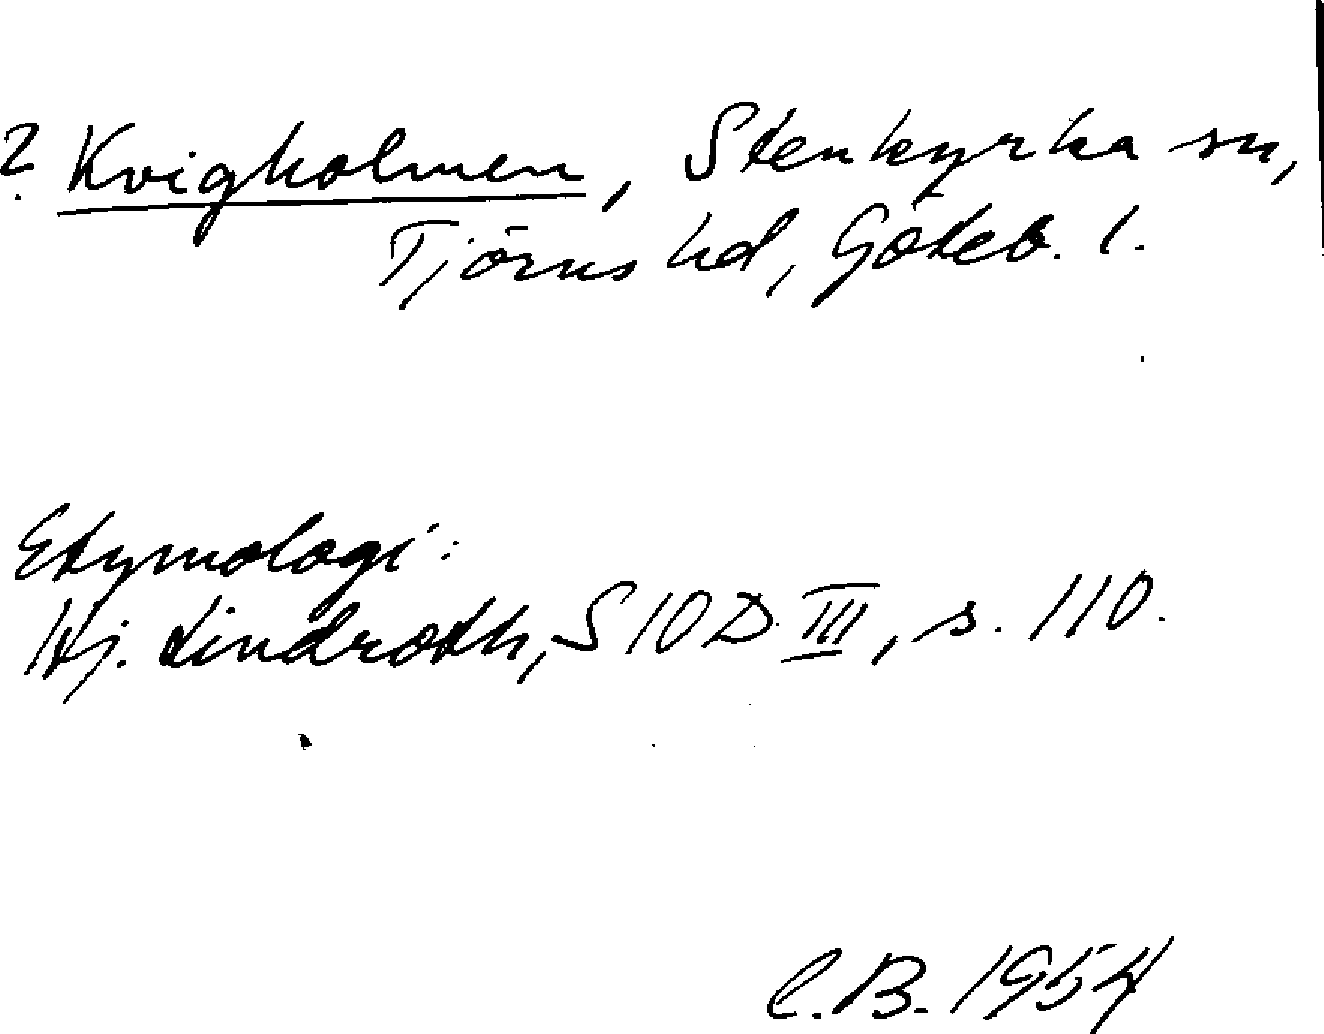 ? Kvigholmen, Stenkyrka sn,
Tjörns hd, Göteb. l.
Etymologi:
Hj. Lindroth, SIOD III, s. 110.
C.B. 1954